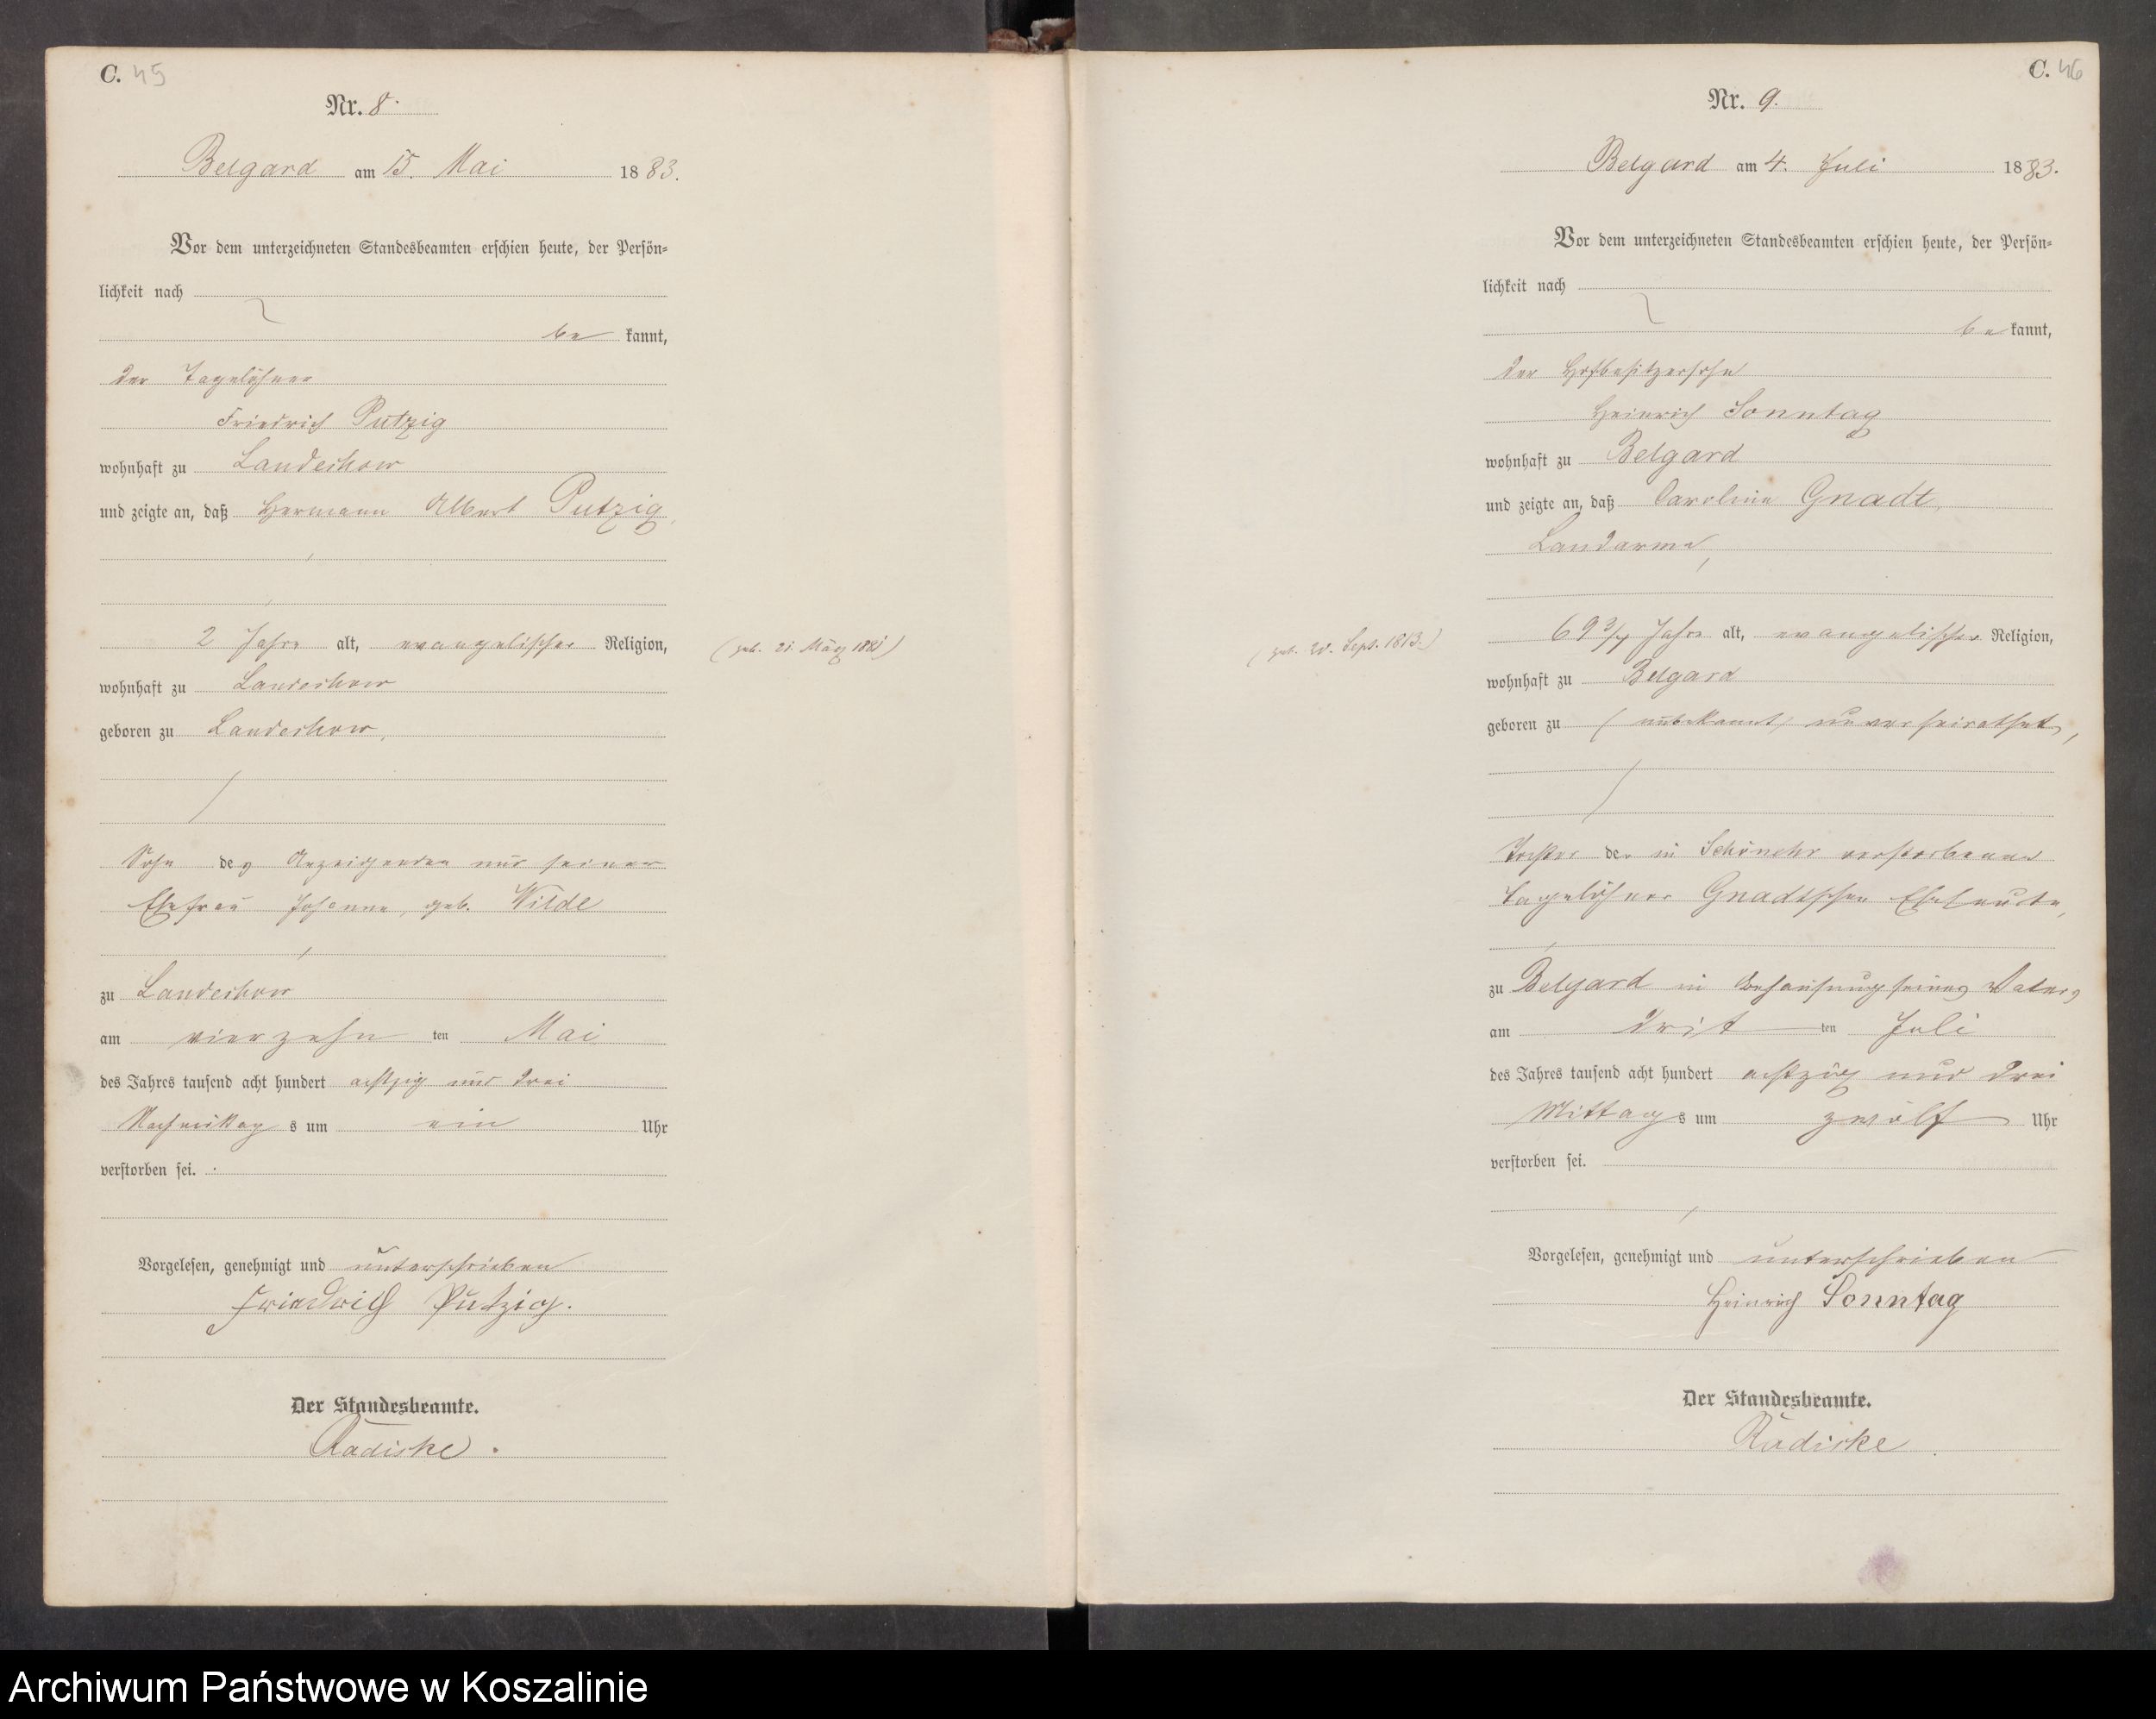 C. 45
Nr. 8.
Belgard am 15. Mai 1883.
Vor dem unterzeichneten Standesbeamten erschien heute, der Persön-
lichkeit nach
be kannt,
der Tagelöhner
Friedrich Putzig
wohnhaft zu Landechow
und zeigte an, daß Hermann Albert Putzig,
2 Jahre alt, evangelischer Religion,
(geb. 21. März 1881)
wohnhaft zu Landechow
geboren zu Landechow,
Sohn des Anzeigenden und seiner
Ehefrau Johanne, geb. Wilde
zu Landechow
am vierzehn ten Mai
des Jahres tausend acht hundert achtzig und drei
Nachmittag s um ein Uhr
verstorben sei.
Vorgelesen, genehmigt und unterschrieben
Friedrich Putzig.
Der Standesbeamte.
Radiske.
C. 46
Nr. 9.
Belgard am 4. Juli 1883.
Vor dem unterzeichneten Standesbeamten erschien heute, der Persön-
lichkeit nach
be kannt,
der Hofbesitzersohn
Heinrich Sonntag
wohnhaft zu Belgard
und zeigte an, daß Caroline Gnadt,
Landarme,
(geb. Sept. 1813.)
69 3/4 Jahre alt, evangelischer Religion,
wohnhaft zu Belgard
geboren zu (unbekannt) unverheirathet,
Tochter der in Schönehr verstorbenen
Tagelöhner Gnadtschen Eheleute,
zu Belgard in Behausung seines Vaters
am drit ten Juli
des Jahres tausend acht hundert achtzig und drei
Mittag s um zwölf Uhr
verstorben sei.
Vorgelesen, genehmigt und unterschrieben
Heinrich Sonntag
Der Standesbeamte.
Radiske.
Archiwum Państwowe w Koszalinie